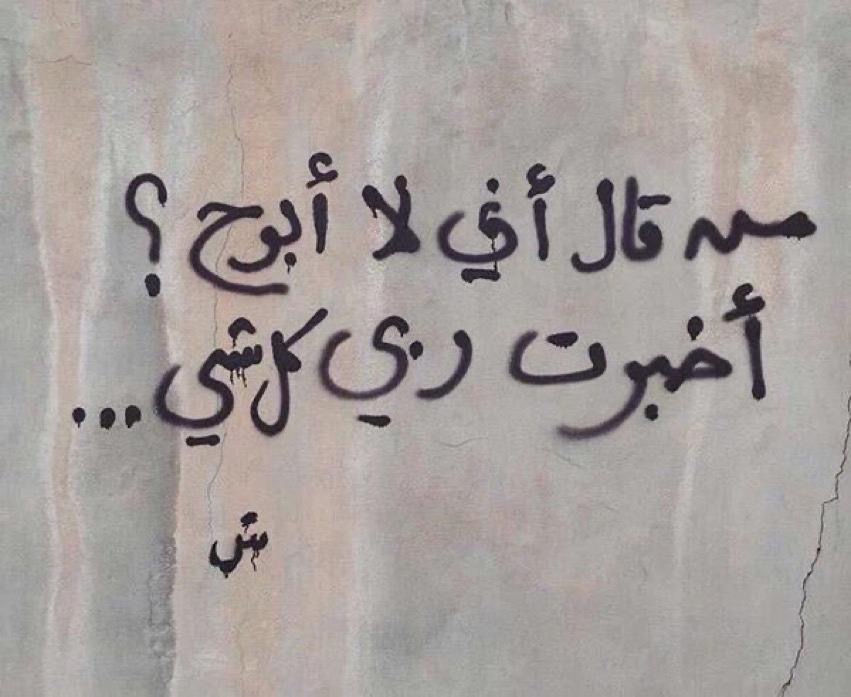 من قال أني لا أبوح ؟
أخبرت ربي كل شي...
ش